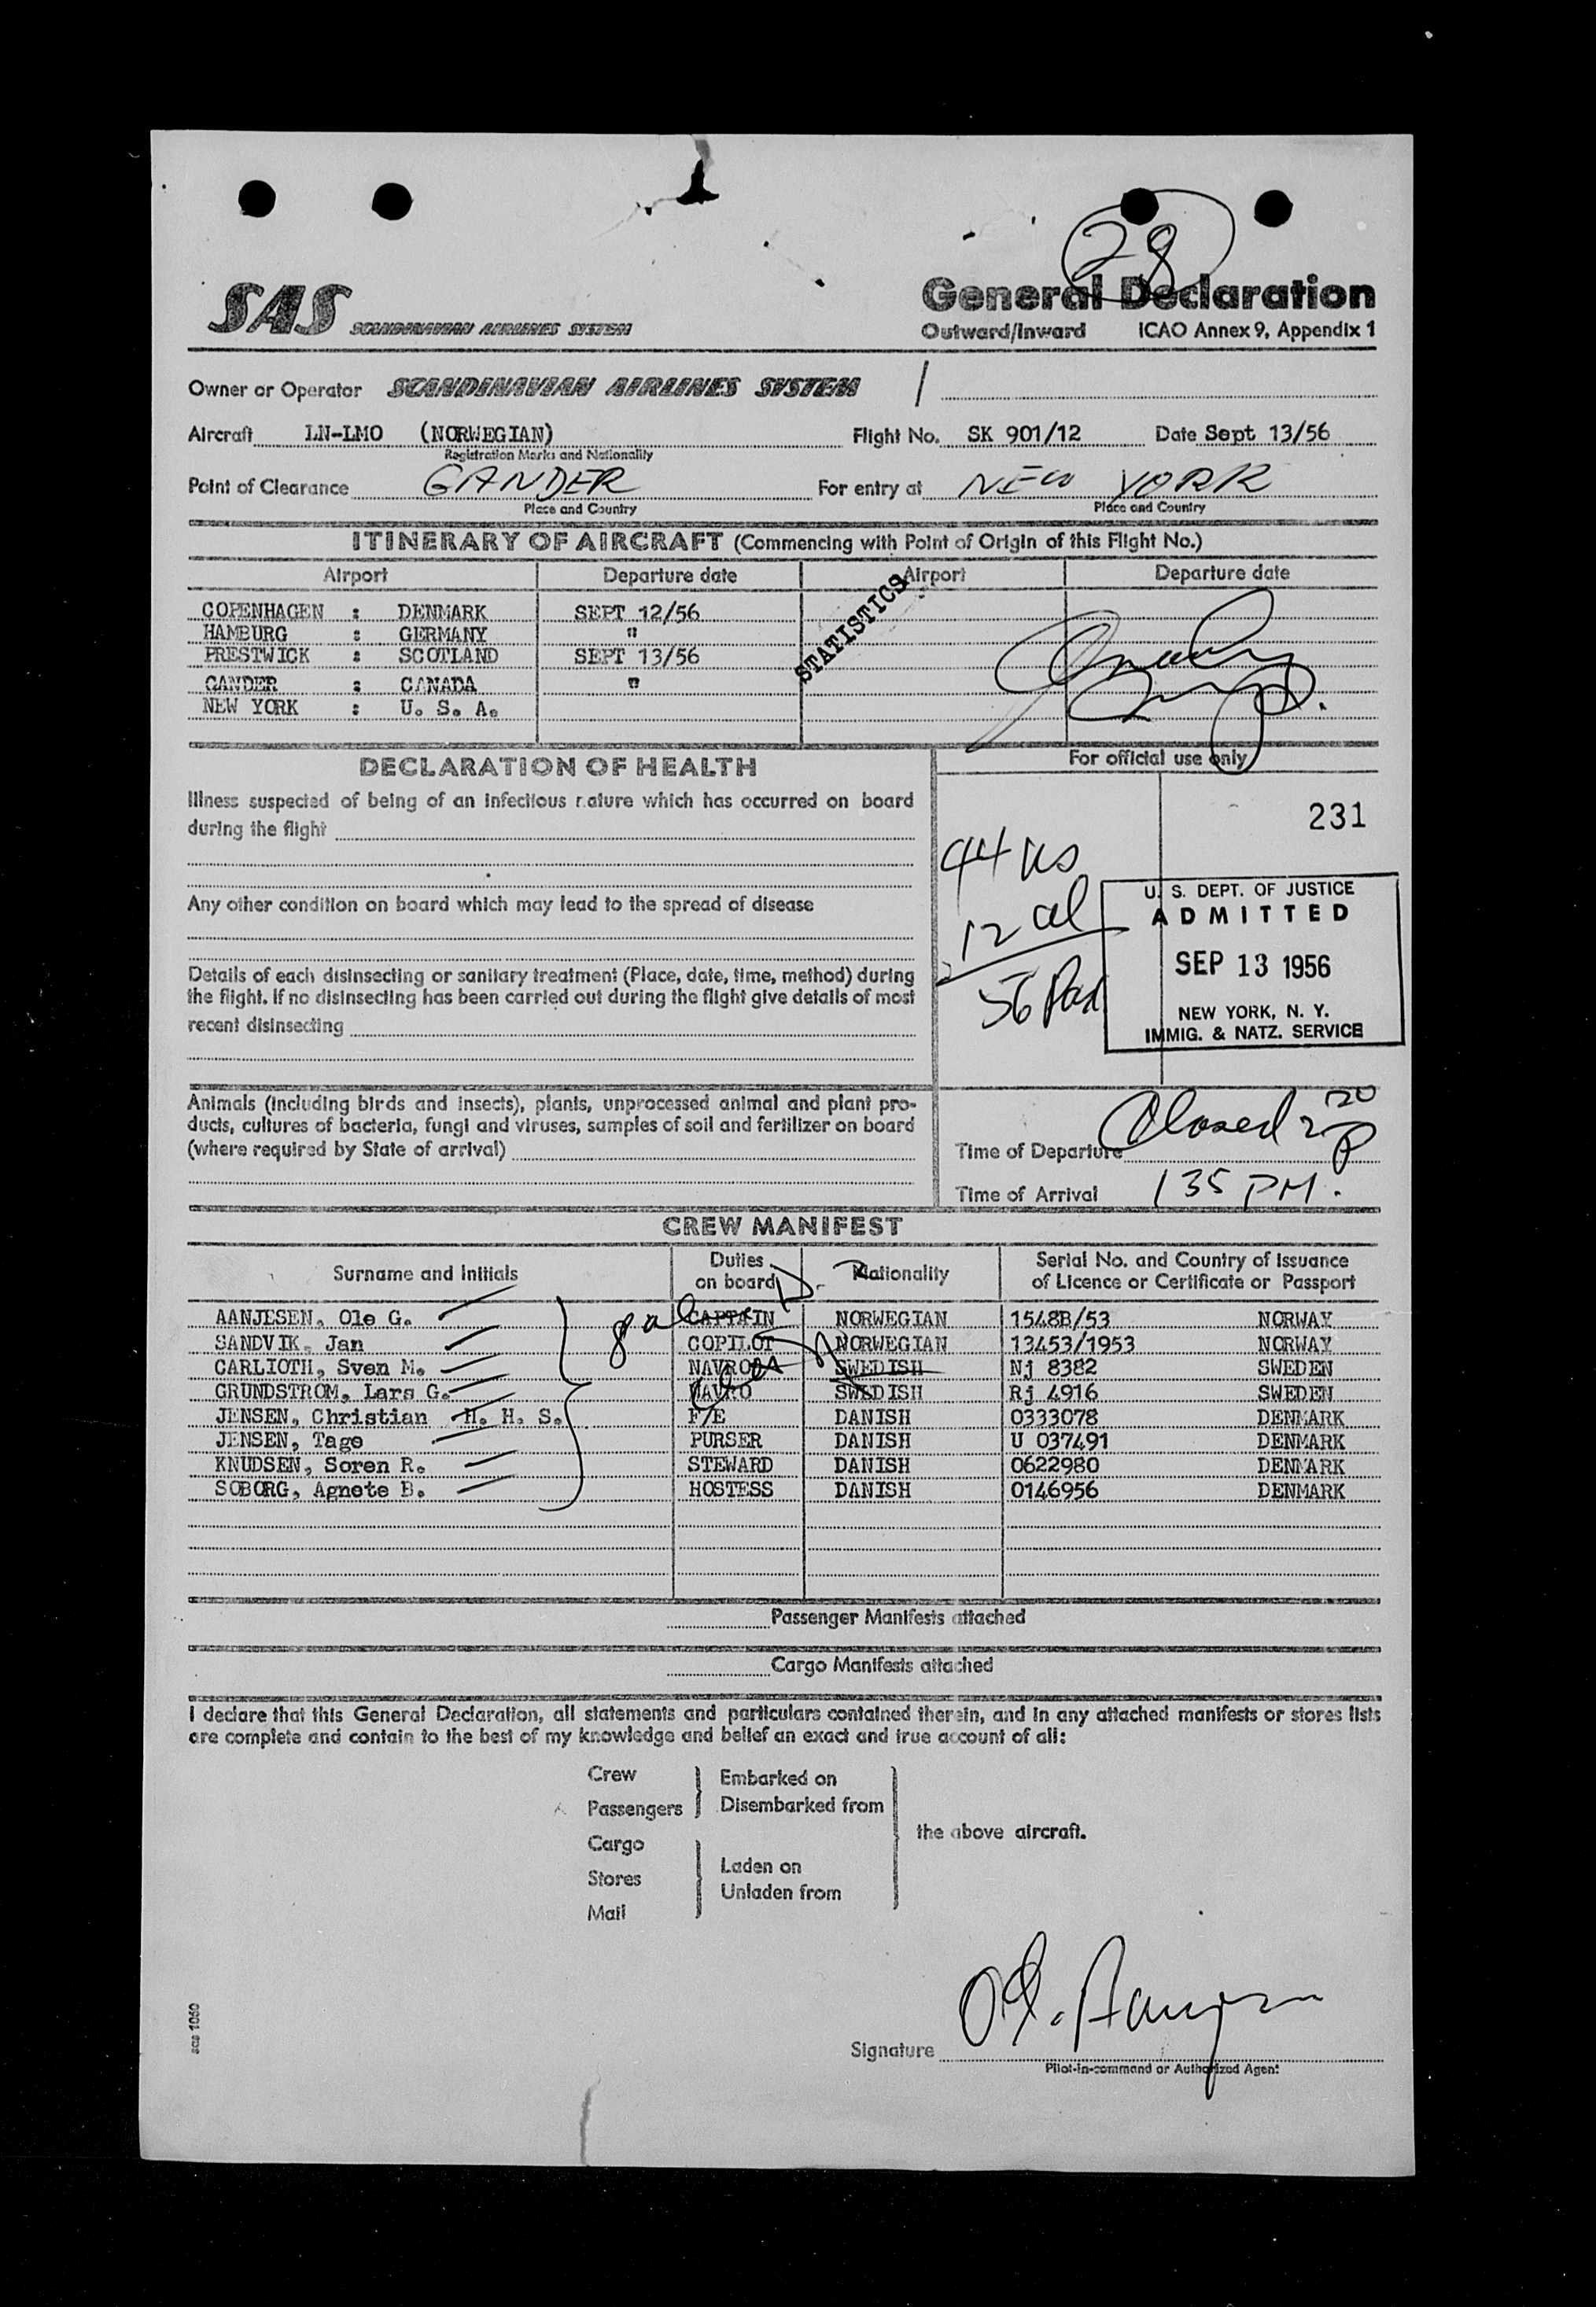 28
SAS SCANDINAVIAN AIRLINES SYSTEM
General Declaration
Outward/Inward ICAO Annex 9, Appendix 1
Owner or Operator SCANDINAVIAN AIRLINES SYSTEM /
Aircraft LN-LMO (NORWEGIAN) Flight No. SK 901/12 Date Sept 13/56
Registration Marks and Nationality
Point of Clearance GANDER For entry at NEW YORK
Place and Country Place and Country
ITINERARY OF AIRCRAFT (Commencing with Point of Origin of this Flight No.)
Airport Departure date Airport Departure date
COPENHAGEN : DENMARK SEPT 12/56
HAMBURG : GERMANY "
PRESTWICK : SCOTLAND SEPT 13/56
GANDER : CANADA "
NEW YORK : U. S. A.
STATISTICS
DECLARATION OF HEALTH
For official use only
Illness suspected of being of an infectious nature which has occurred on board
during the flight
Any other condition on board which may lead to the spread of disease
Details of each disinsecting or sanitary treatment (Place, date, time, method) during
the flight. If no disinsecting has been carried out during the flight give details of most
recent disinsecting
231
44 us
12 al
56 Pax
U. S. DEPT. OF JUSTICE
ADMITTED
SEP 13 1956
NEW YORK, N. Y.
IMMIG. & NATZ. SERVICE
Animals (including birds and insects), plants, unprocessed animal and plant pro-
ducts, cultures of bacteria, fungi and viruses, samples of soil and fertilizer on board
(where required by State of arrival)
Time of Departure Closed 2 20 P
Time of Arrival 135 PM.
CREW MANIFEST
Surname and Initials Duties on board Nationality Serial No. and Country of Issuance of Licence or Certificate or Passport
AANJESEN, Ole G. CAPTAIN NORWEGIAN 1548B/53 NORWAY
SANDVIK, Jan COPILOT NORWEGIAN 13453/1953 NORWAY
CARLIOTH, Sven M. NAVRO SWEDISH Nj 8382 SWEDEN
GRUNDSTROM, Lars G. NAVRO SWEDISH Rj 4916 SWEDEN
JENSEN, Christian H. H. S. F/E DANISH 0333078 DENMARK
JENSEN, Tage PURSER DANISH U 037491 DENMARK
KNUDSEN, Soren R. STEWARD DANISH 0622980 DENMARK
SOBORG, Agnete B. HOSTESS DANISH 0146956 DENMARK
Passenger Manifests attached
Cargo Manifests attached
I declare that this General Declaration, all statements and particulars contained therein, and in any attached manifests or stores lists
are complete and contain to the best of my knowledge and belief an exact and true account of all:
Crew
Passengers
Embarked on
Disembarked from
Cargo
Stores
Mail
Laden on
Unladen from
the above aircraft.
Signature
Pilot-in-command or Authorized Agent
sas 1060